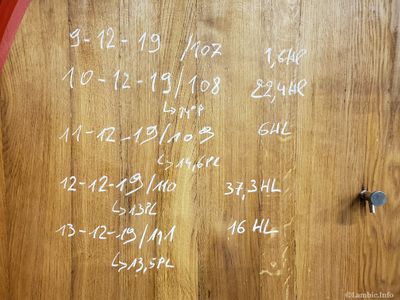 9-12-19 /107 1,6Hl
10-12-19/108 22,4Hl
↳14°P
11-12-19/109 6HL
↳14,6PL
12-12-19/110 37,3HL
↳13PL
13-12-19/111 16HL
↳13,5PL
©Lambic.Info